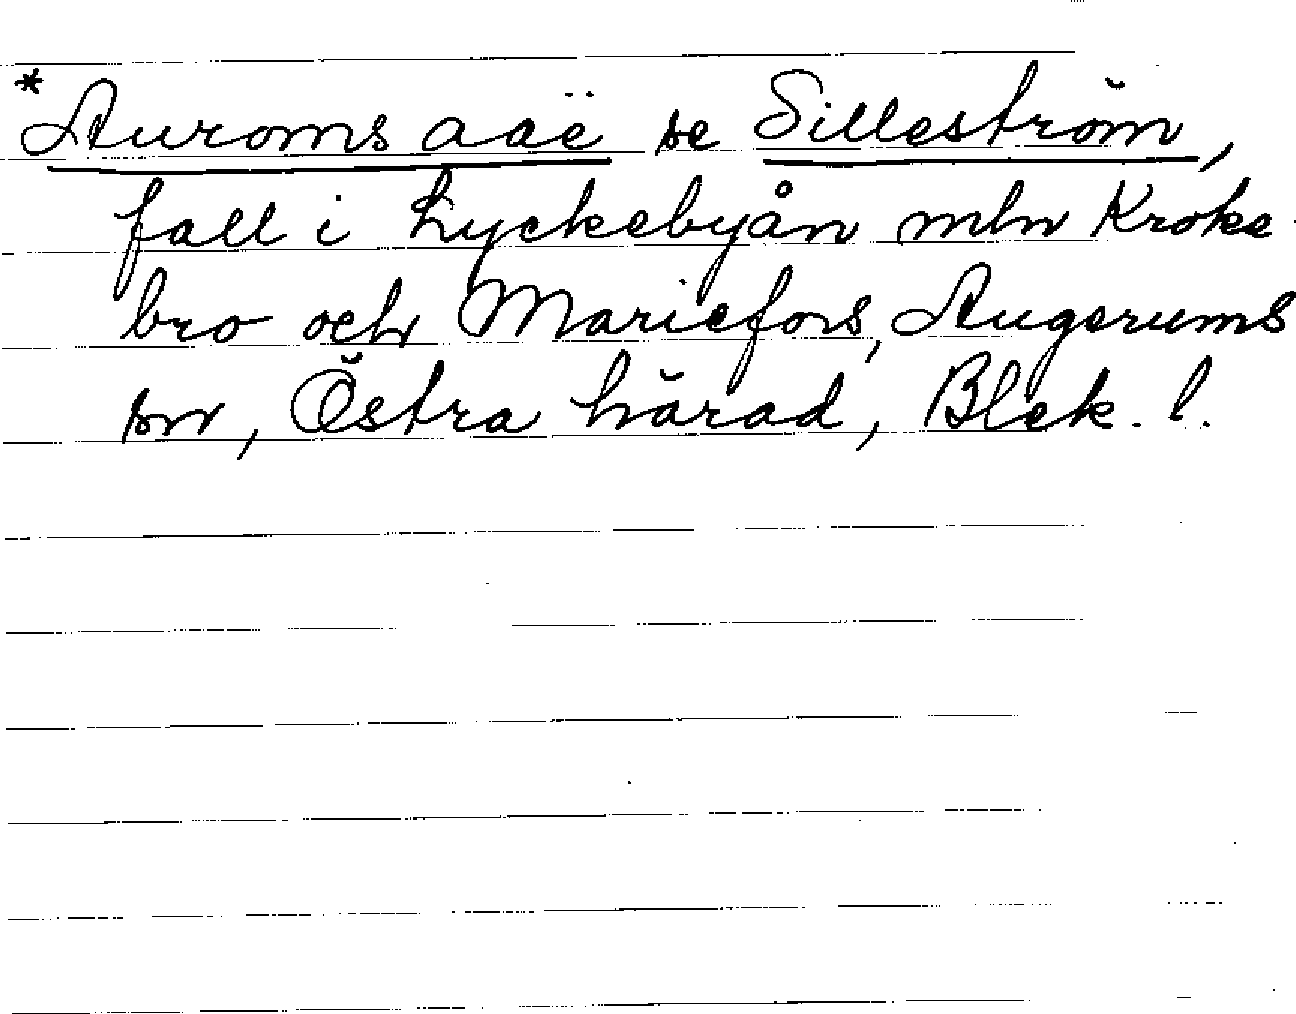 * Auroms aaë se Silleström,
fall i Lyckebyån mln Kroke
bro och Mariefors, Augerums
sn, Östra härad, Blek. l.